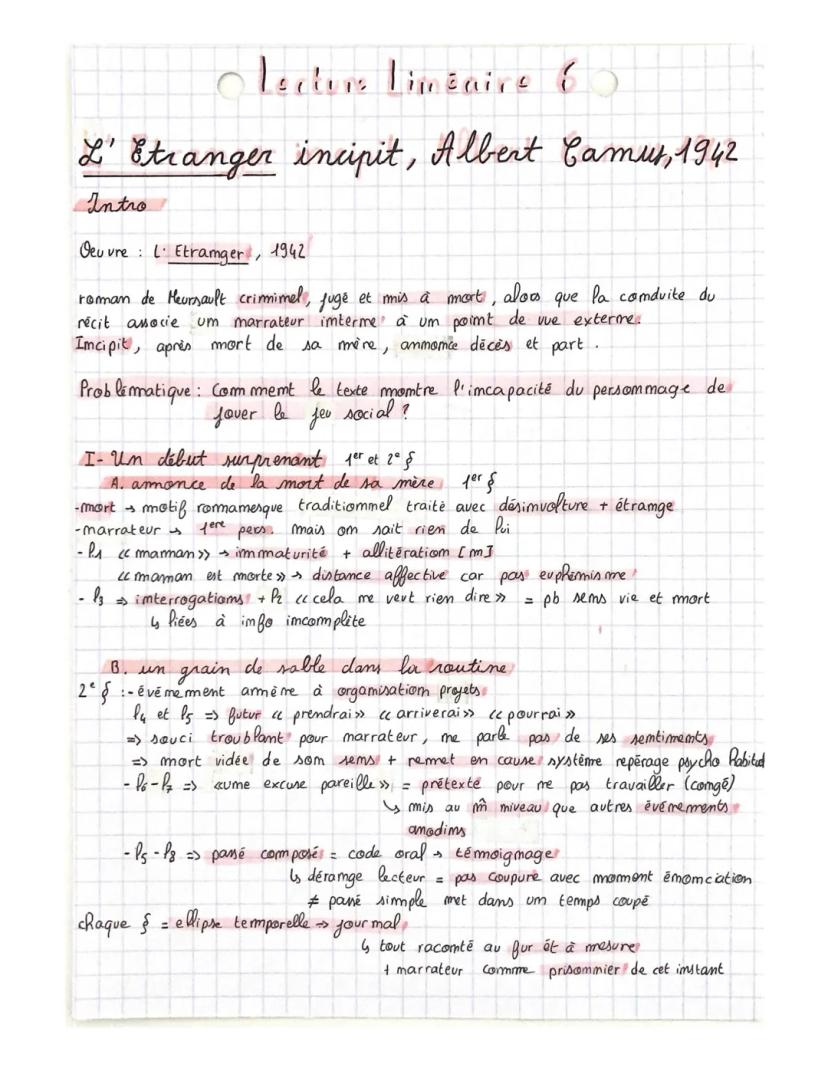 Lecture Linéaire 6
L'Etranger incipit, Albert Camus, 1942
Intro
Oeuvre : L'Etranger, 1942
roman de Meursault criminel, jugé et mis à mort, alors que la conduite du
récit associe un narrateur interne à un point de vue externe.
Incipit, après mort de sa mère, annonce décès et part.
Problématique : Comment le texte montre l'incapacité du personnage de
jouer le jeu social ?
I- Un début surprenant 1er et 2e §
A. annonce de la mort de sa mère 1er §
-mort → motif romanesque traditionnel traité avec désinvolture + étrange
-narrateur → 1ere pers. mais on sait rien de lui
- l1 « maman » → immaturité + allitération [m]
« maman est morte » → distance affective car pas euphémisme
- l3 ⇒ interrogations + l2 « cela ne veut rien dire » = pb sens vie et mort
↳ liées à info incomplète
B. un grain de sable dans la routine
2e § :- événement amène à organisation projets
l4 et l5 => futur « prendrai » « arriverai » « pourrai »
=> souci troublant pour narrateur, ne parle pas de ses sentiments
=> mort vidée de son sens + remet en cause système repérage psycho habituel
- l6-l7 => « une excuse pareille » = prétexte pour ne pas travailler (congé)
↳ mis au m̂ niveau que autres événements
anodins
- l5-l8 => passé composé = code oral → témoignage
↳ dérange lecteur = pas coupure avec moment énonciation
≠ passé simple met dans un temps coupé
chaque § = ellipse temporelle → journal
↳ tout raconté au fur et à mesure
+ narrateur comme prisonnier de cet instant